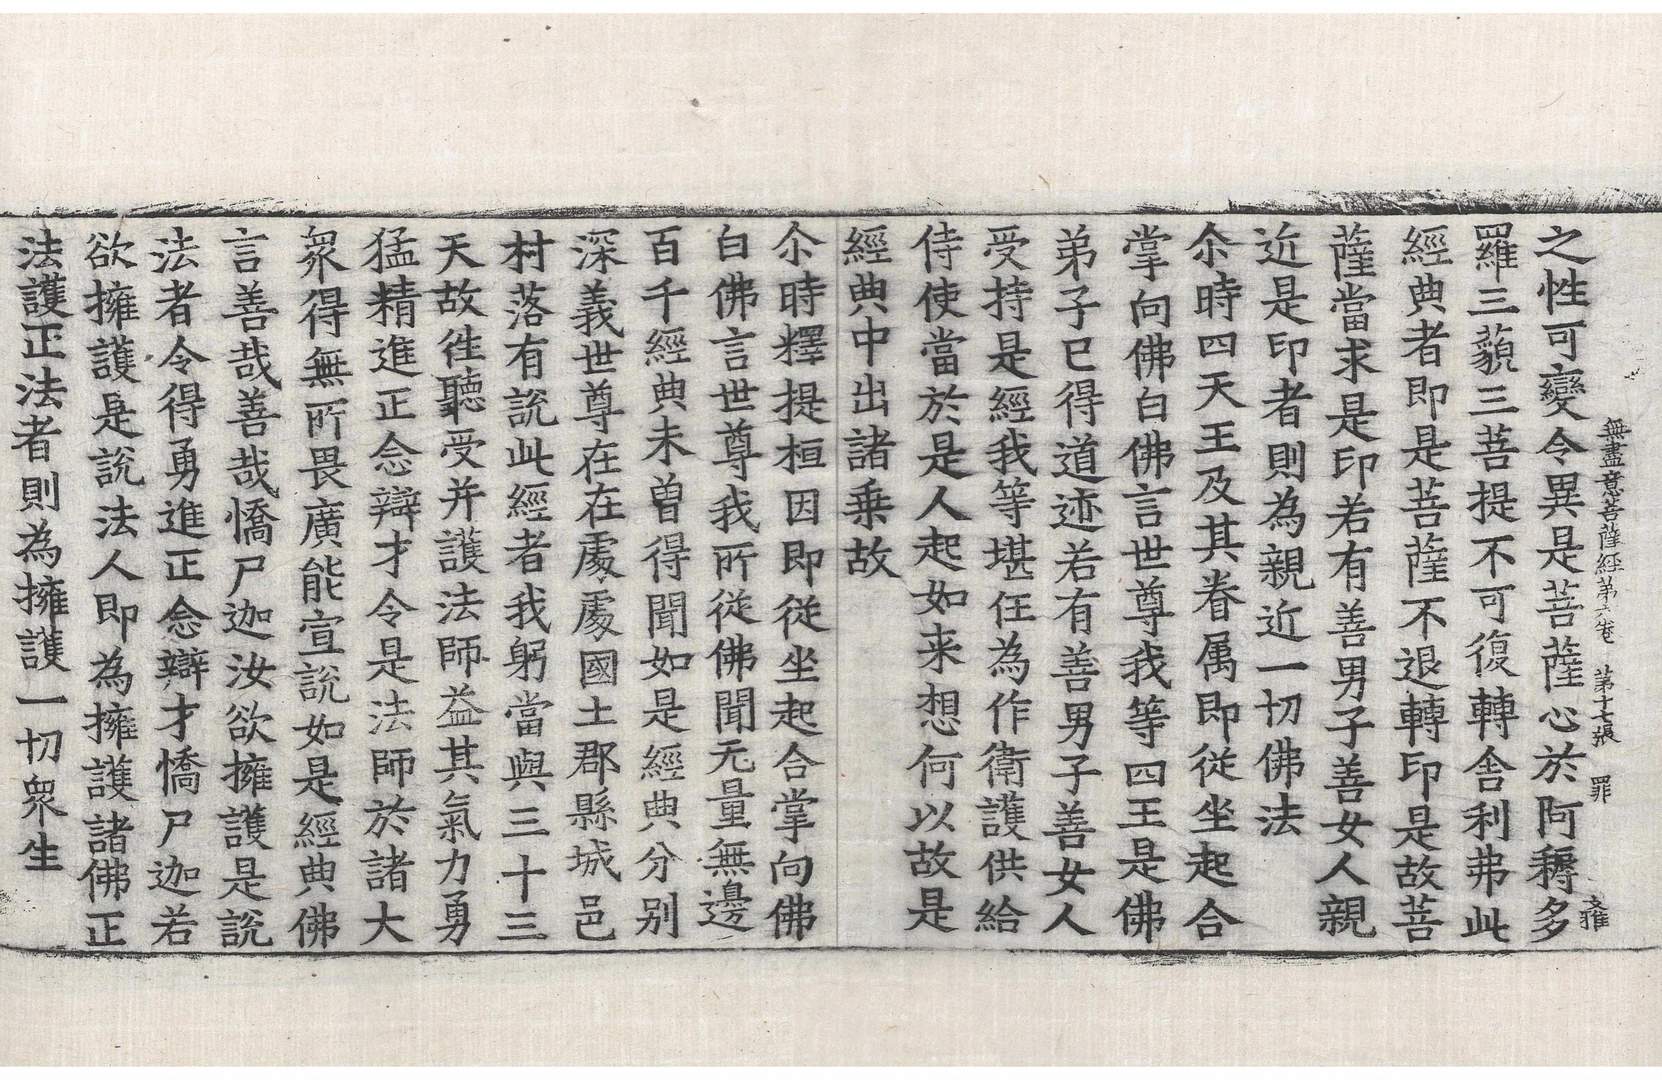 無盡意菩薩經第六卷 第十七張 罪
之性可變令異是菩薩心於阿耨多
羅三藐三菩提不可復轉舍利弗此
經典者即是菩薩不退轉印是故菩
薩當求是印若有善男子善女人親
近是印者則為親近一切佛法
尒時四天王及其眷属即從坐起合
掌向佛白佛言世尊我等四王是佛
弟子已得道迹若有善男子善女人
受持是經我等堪任為作衛護供給
侍使當於是人起如来想何以故是
經典中出諸乗故
尒時釋提桓因即從坐起合掌向佛
白佛言世尊我所從佛聞无量無邊
百千經典未曽得聞如是經典分别
深義世尊在在處處國土郡縣城邑
村落有說此經者我躬當與三十三
天故徃聽受并護法師益其氣力勇
猛精進正念辯才令是法師於諸大
衆得無所畏廣能宣說如是經典佛
言善哉善哉憍尸迦汝欲擁護是說
法者令得勇進正念辯才憍尸迦若
欲擁護是說法人即為擁護諸佛正
法護正法者則為擁護一切衆生